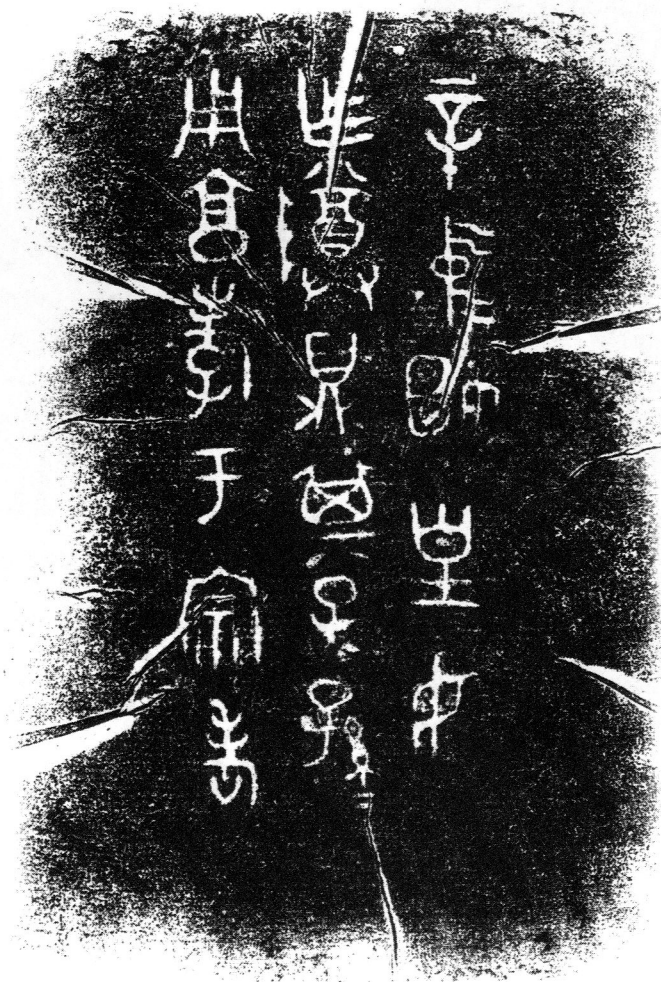 辛中姬皇母
乍尊鼎其子=孫=
用享孝于宗老